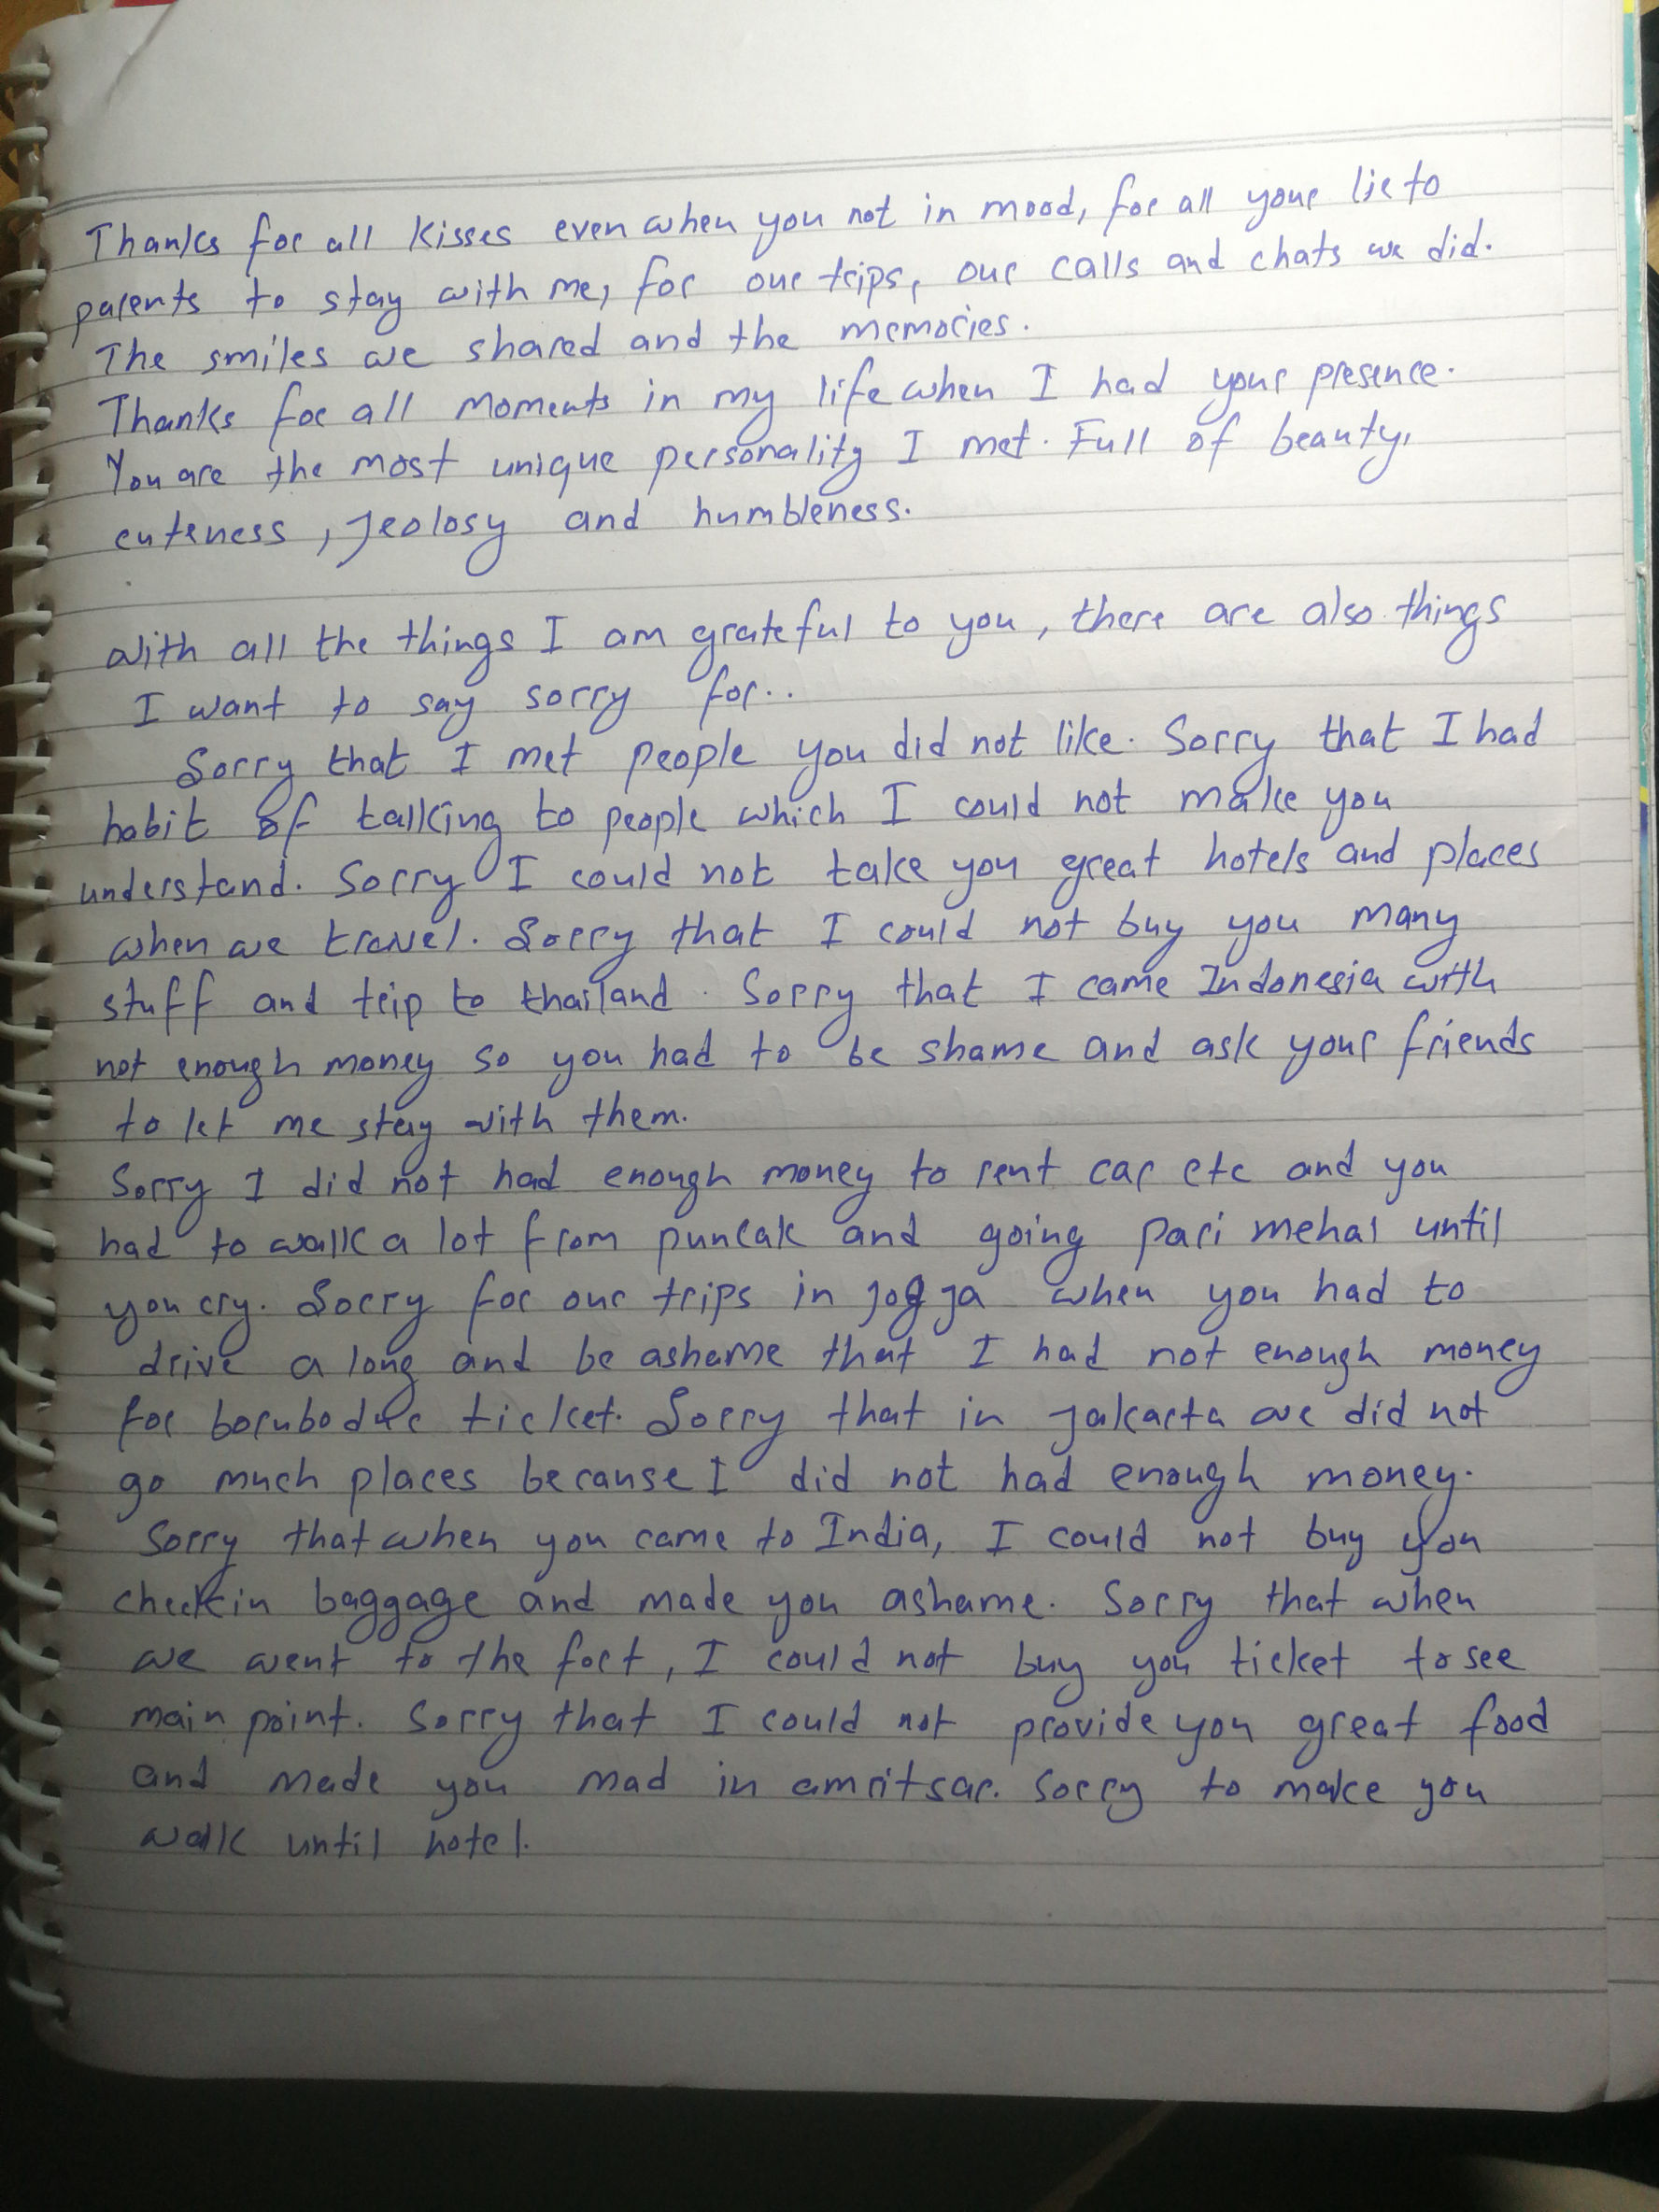 Thanks for all kisses even when you not in mood, for all your lie to
parents to stay with me, for our trips, our calls and chats we did.
The smiles we shared and the memories.
Thanks for all moments in my life when I had your presence.
You are the most unique personality I met. Full of beauty,
cuteness, Jeolosy and humbleness.
With all the things I am grateful to you, there are also things
I want to say sorry for..
Sorry that I met people you did not like. Sorry that I had
habit of talking to people which I could not make you
understand. Sorry I could not take you great hotels and places
when we travel. Sorry that I could not buy you many
stuff and trip to thailand. Sorry that I came Indonesia with
not enough money so you had to be shame and ask your friends
to let me stay with them.
Sorry I did not had enough money to rent car etc and you
had to walk a lot from puncak and going pari mehal until
you cry. Sorry for our trips in jogja when you had to
drive a long and be ashame that I had not enough money
for borubodur ticket. Sorry that in Jakarta we did not
go much places because I did not had enough money.
Sorry that when you came to India, I could not buy you
checkin baggage and made you ashame. Sorry that when
we went to the fort, I could not buy you ticket to see
main point. Sorry that I could not provide you great food
and made you mad in amritsar. Sorry to make you
walk until hotel.